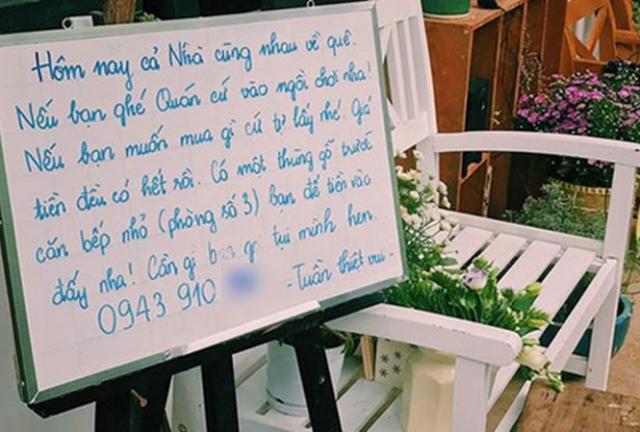 Hôm nay cả Nhà cùng nhau về quê.
Nếu bạn ghé Quán cứ vào ngồi chơi nha!
Nếu bạn muốn mua gì cứ tự lấy nhé. Giá
tiền đều có hết rồi. Có một thùng gỗ trước
căn bếp nhỏ (phòng số 3) bạn để tiền vào
đấy nha! Cần gì bạn gọi tụi mình hen.
0943 910
- Tuần thiệt vui -